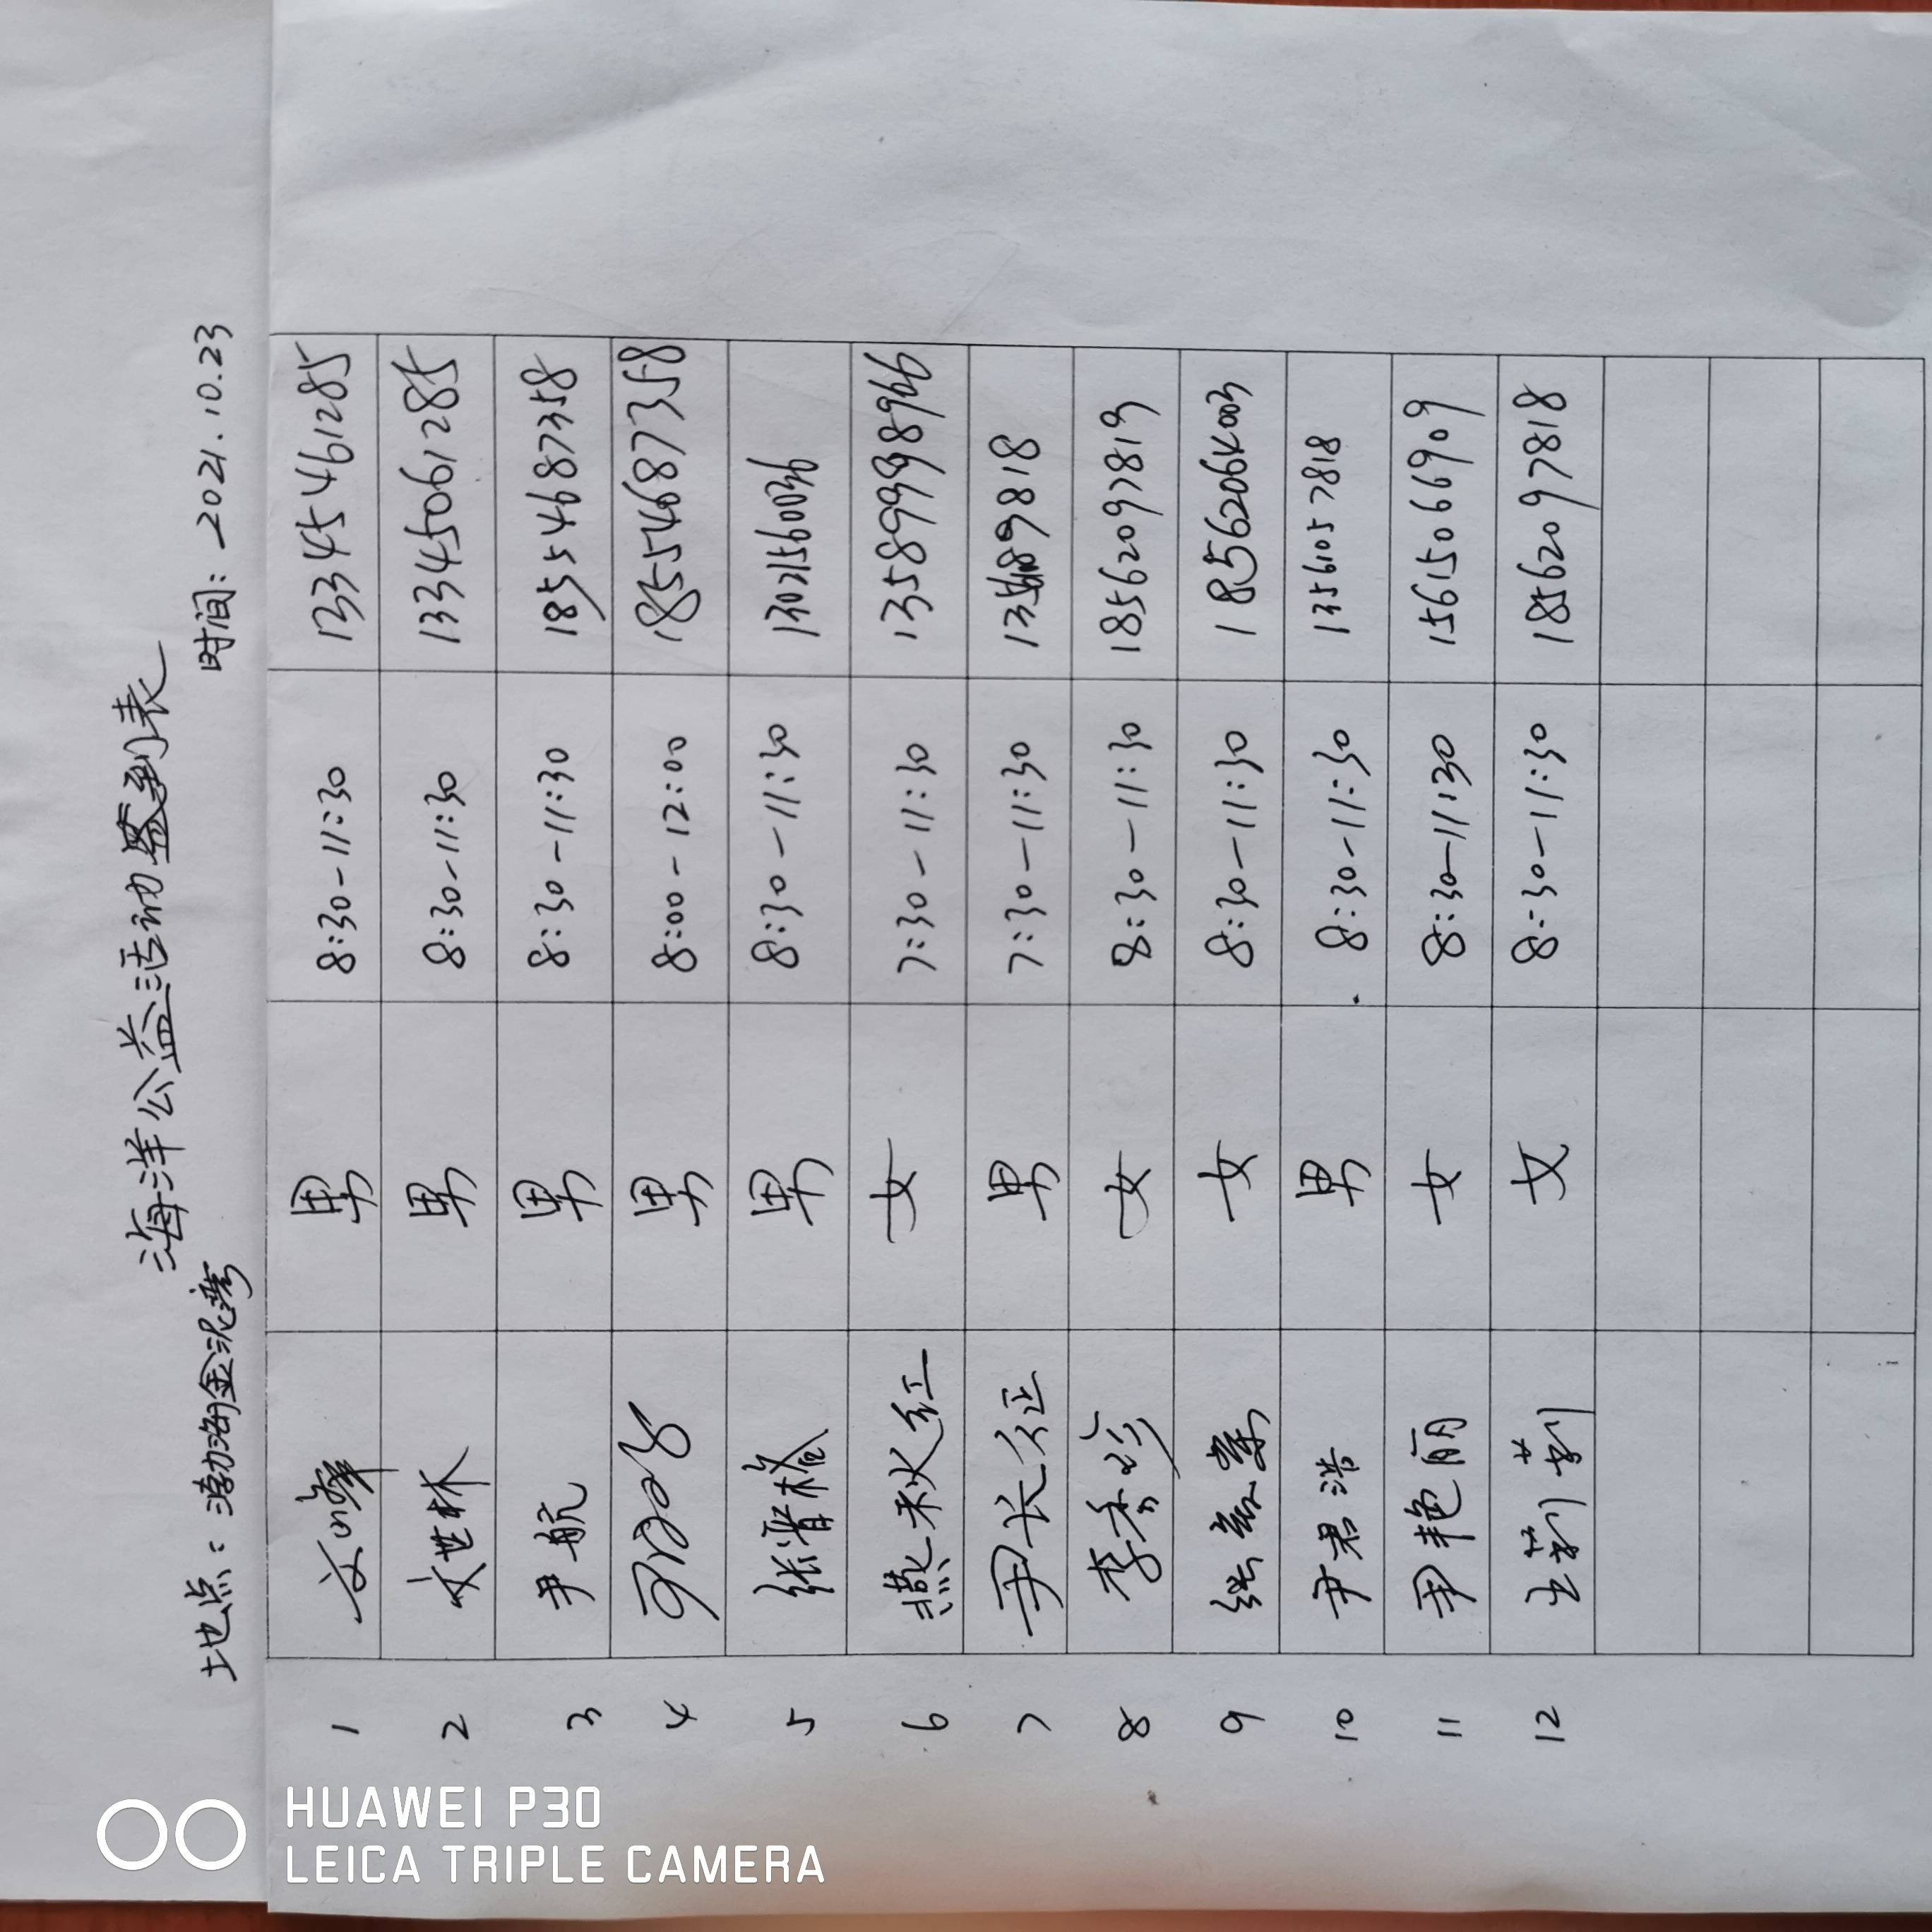 海洋公益活动签到表
地点：渤海金泥湾 时间：2021.10.23
1 男 8:30-11:30 13345461285
2 文世林 男 8:30-11:30 13345061285
3 尹航 男 8:30-11:30 18554687358
4 男 8:00-12:00 18554687358
5 男 8:30-11:30
6 燕秋红 女 7:30-11:30
7 尹长征 男 7:30-11:30
8 李秀珍 女 8:30-11:30 18562097819
9 女 8:30-11:30 18562064003
10 尹君浩 男 8:30-11:30 13561057818
11 尹艳丽 女 8:30-11:30 15615066909
12 王莉莉 女 8:30-11:30 18562097818
HUAWEI P30
LEICA TRIPLE CAMERA